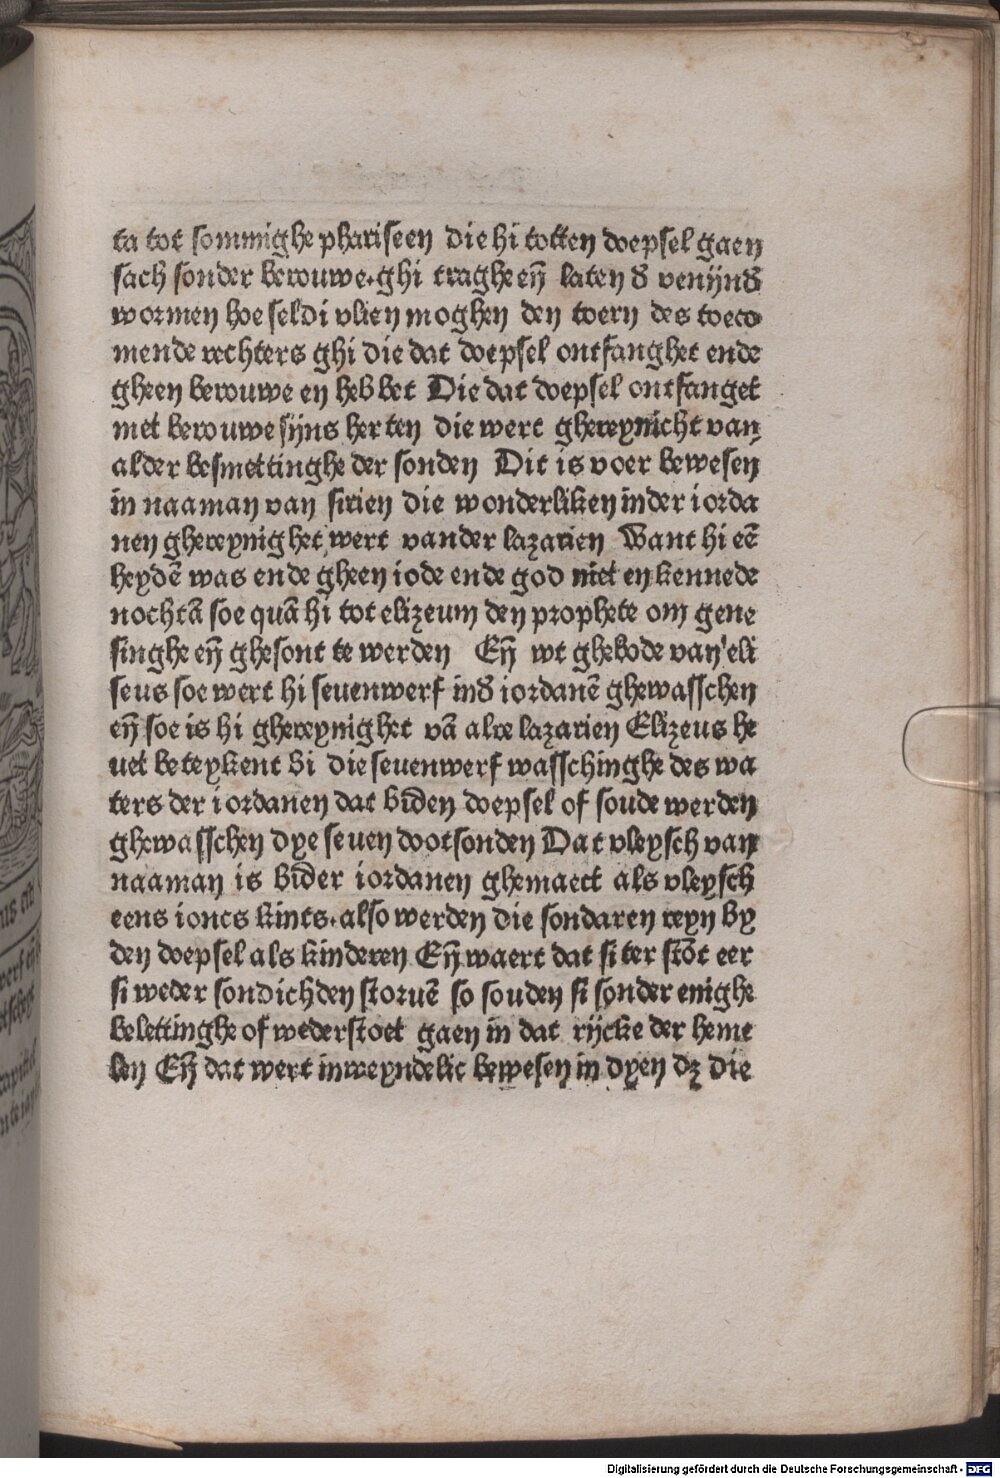 ta tot sommighe phariseen die hi totten doepsel gaen
sach sonder berouwe.ghi traghe eñ laten đ venijnđ
wormen hoe seldi vlien moghen den toern des toeco
mende rechters ghi die dat doepsel ontfanghet ende
gheen berouwe en hebbet Die dat doepsel ontfanget
met berouwe sijns herten die wert ghereynicht van
alder besmettinghe der sonden Dit is voer bewesen
in naaman van sirien die wonderliken inder iorda
nen ghereynighet wert vander lazarien Want hi eē
heydē was ende gheen iode ende god niet en kennede
nochtā soe quā hi tot elizeum den prophete om gene
singhe eñ ghesont te werden Eñ wt ghebode van eli
seus soe wert hi seuenwerf inđ iordanē ghewasschen
eñ soe is hi ghereynighet vā alre lazarien Elizeus he
uet beteykent bi die seuenwerf wasschinghe des wa
ters der iordanen dat biden doepsel of soude werden
ghewasschen dye seuen dootsonden Dat vleysch van
naaman is bider iordanen ghemaect als vleysch
eens ioncs kints.also werden die sondaren reyn by
den doepsel als kinderen Eñ waert dat si ter stōt eer
si weder sondichden storuē so souden si sonder enighe
belettinghe of wederstoet gaen in dat rijcke der heme
len Eñ dat wert inweyndelic bewesen in dyen dꝫ die
Digitalisierung gefördert durch die Deutsche Forschungsgemeinschaft - DFG